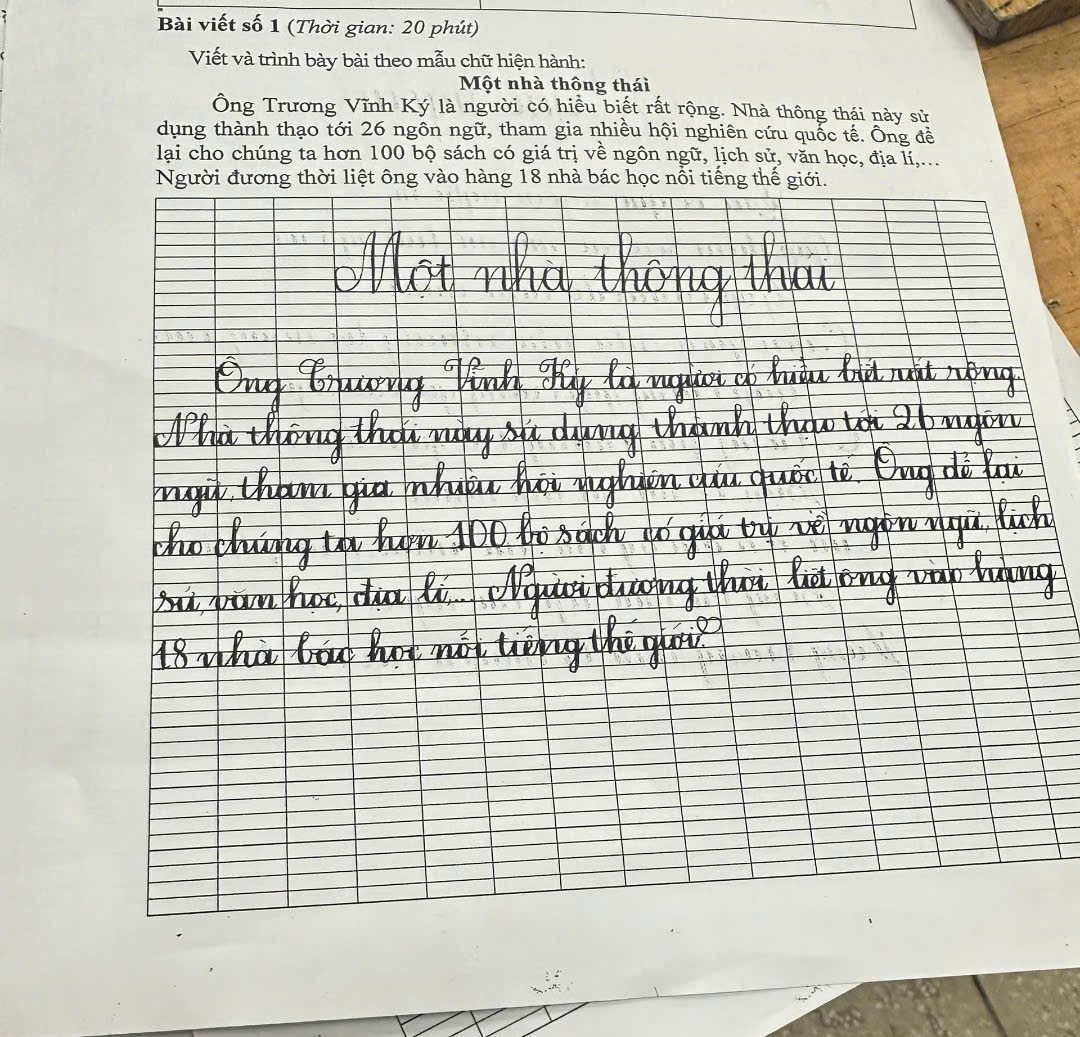 Bài viết số 1 (Thời gian: 20 phút)
Viết và trình bày bài theo mẫu chữ hiện hành:
Một nhà thông thái
Ông Trương Vĩnh Ký là người có hiểu biết rất rộng. Nhà thông thái này sử
dụng thành thạo tới 26 ngôn ngữ, tham gia nhiều hội nghiên cứu quốc tế. Ông để
lại cho chúng ta hơn 100 bộ sách có giá trị về ngôn ngữ, lịch sử, văn học, địa lí,...
Người đương thời liệt ông vào hàng 18 nhà bác học nổi tiếng thế giới.
Một nhà thông thái
Ông Trương Vĩnh Ký là người có hiểu biết rất rộng.
Nhà thông thái này sử dụng thành thạo tới 26 ngôn
ngữ, tham gia nhiều hội nghiên cứu quốc tế. Ông để lại
cho chúng ta hơn 100 bộ sách có giá trị về ngôn ngữ, lịch
sử, văn học, địa lí... Người đương thời liệt ông vào hàng
18 nhà bác học nổi tiếng thế giới.